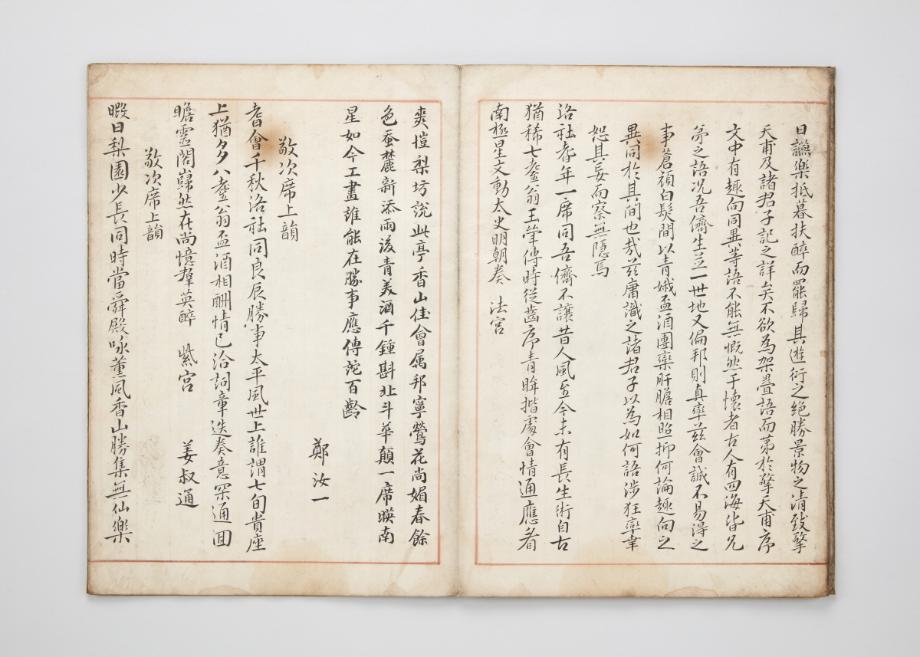 日讌樂抵暮扶醉而罷歸其遊衍之絶勝景物之淸致擎
天甫及諸君子記之詳矣不欲為架疊語而第於擎天甫序
文中有趣向同異等語不能無慨然于懷者古人有四海皆兄
弟之語况吾儕生並一世地又偏邦則真率玆會誠不易得之
事蒼顔白髮間以青娥盃酒團欒肝膽相照抑何論趣向之
異同於其間也哉玆庸識之諸君子以為如何語涉狂率幸
恕其妄而察無隱焉
洛社耆年一席同吾儕不讓昔人風至今未有長生術自古
猶稀七耋翁玉聲傳時從齒序青眸揩處會情通應看
南極星文動太史明朝奏 法宮
爽愷梨坊說此亭香山佳會属邦寧鶯花尚媚春餘
色蚕麓新添雨後青美酒千鍾斟北斗華顛一席暎南
星如今工畫誰能在勝事應傳詫百齡
鄭汝一
敬次席上韻
耆會千秋洛社同良辰勝事太平風世上誰謂七旬貴座
上猶多八耋翁盃酒相酬情已洽詞章迭奏意深通回
瞻霊閣巋然在尚憶羣英醉 紫宮
姜叔通
敬次席上韻
暇日梨園少長同時當舜殿咏薰風香山勝集無仙樂